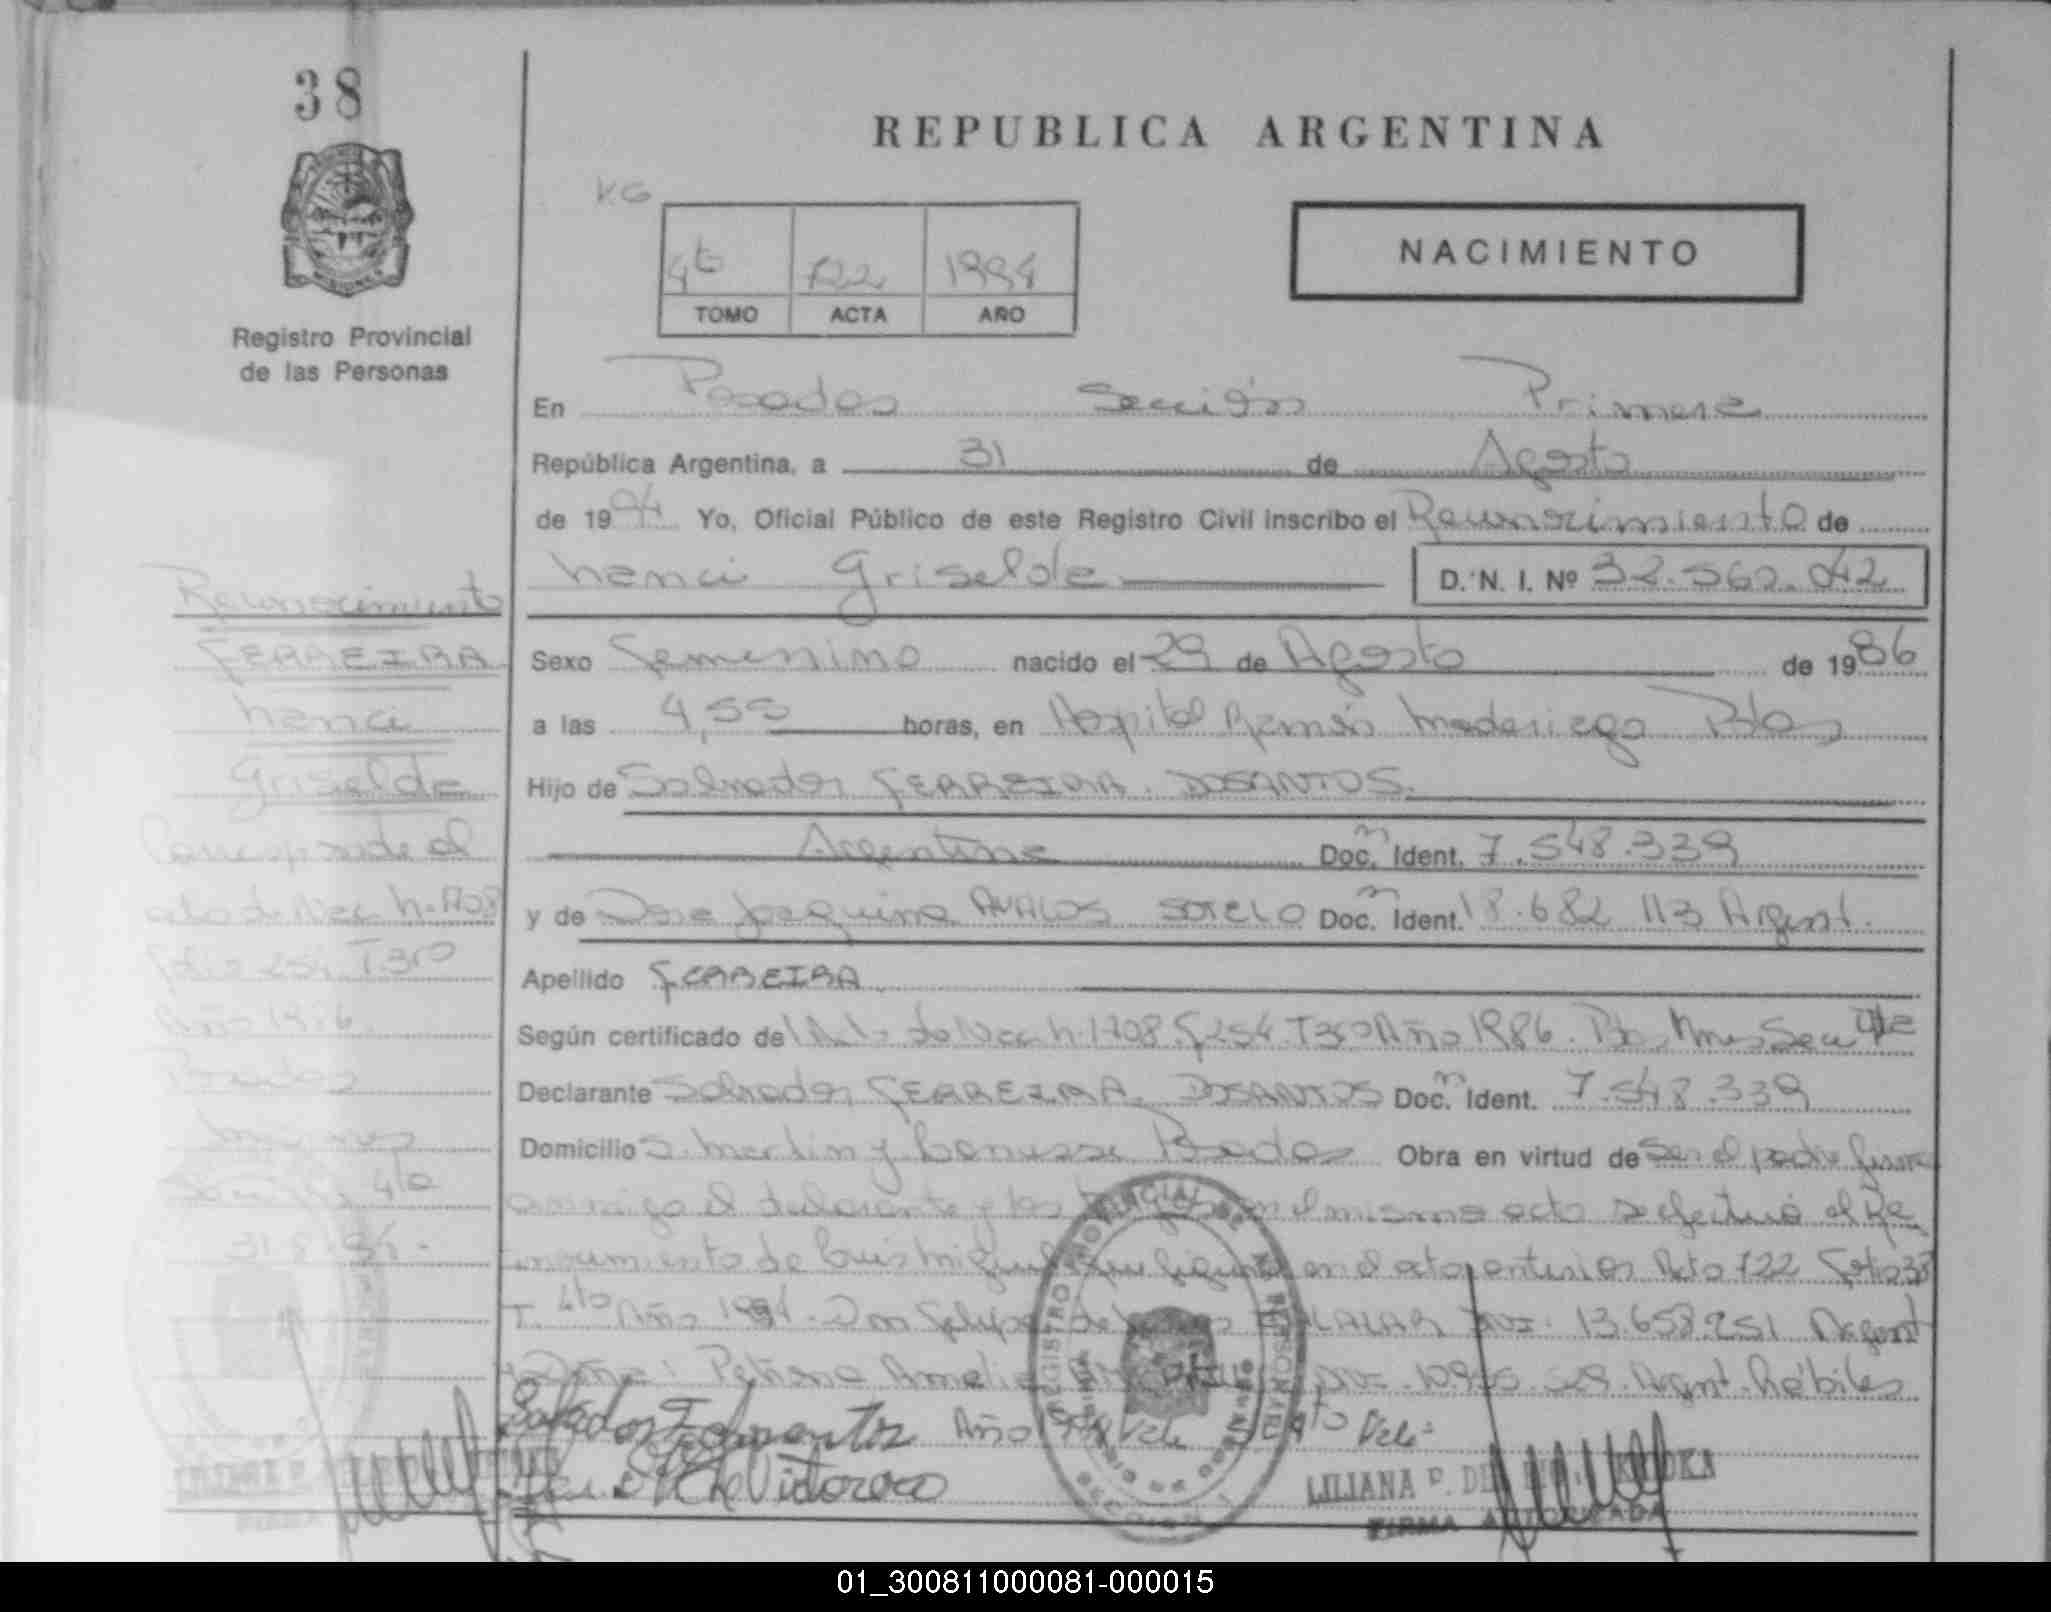 38
REPUBLICA ARGENTINA
K.G
NACIMIENTO
4to 122 1994
TOMO ACTA AÑO
Registro Provincial
de las Personas
En Posadas Sección Primera
República Argentina, a 31 de Agosto
de 1994 Yo, Oficial Público de este Registro Civil inscribo el Reconocimiento de
Nanci Griselda D. N. I. Nº 32.562.042
Sexo Femenino nacido el 29 de Agosto de 1986
a las 4,55 horas, en Hospital Ramón Madariaga Pdas
Hijo de Salvador FERREIRA DOSANTOS.
Argentina Doc. Ident. 7.548.339
y de Joaquina AVALOS SOTELO Doc. Ident. 18.682 113 Argent.
Apellido FERREIRA
Según certificado de Nac N. 1708 F 254 T 3ro Año 1986. Pdas Mnes Secc
Declarante Salvador FERREIRA DOSANTOS Doc. Ident. 7.548.339
Domicilio S. Martin y Posadas Obra en virtud de ser el padre firma
conmigo el declarante y los en el mismo acto se efectuó el Re
conocimiento de Luis Miguel que figura en el acta anterior Acta 122 Folio
T. 4to Año 1994. Don Felipe de DNI. 13.658.251 Argent
y Doña: Amelia Argent. hábiles
Año Vale 4to Vale
LILIANA P. DE
FIRMA AUTORIZADA
REGISTRO PROVINCIAL DE LAS PERSONAS
Reconocimiento
FERREIRA
Nanci
Griselda
Corresponde al
acta de Nac N. 1708
folio 254 T 3ro
Año 1986
Posadas
Misiones
Sección 4ta
31-8-94.
01_300811000081-000015